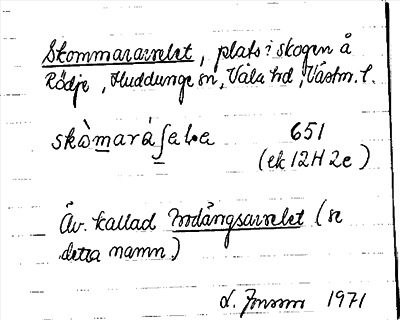 Skommararvelet, plats i skogen å
Rödje, Huddunge sn, Våla hd, Västm. l.
skòmaráʃeḷa 651
(ek 12H 2e)
Äv. kallad Brotångsarvelet (se
detta namn)
L. Jonsson 1971